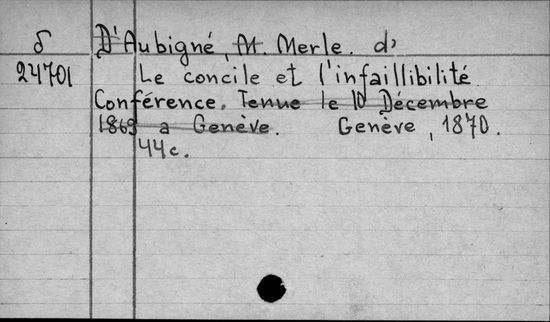 δ D'Aubigné, M. Merle. d'
24701 Le concile et l'infaillibilité.
Conférence. Tenue le 10 Décembre
1869 a Genève. Genève, 1870.
44c.